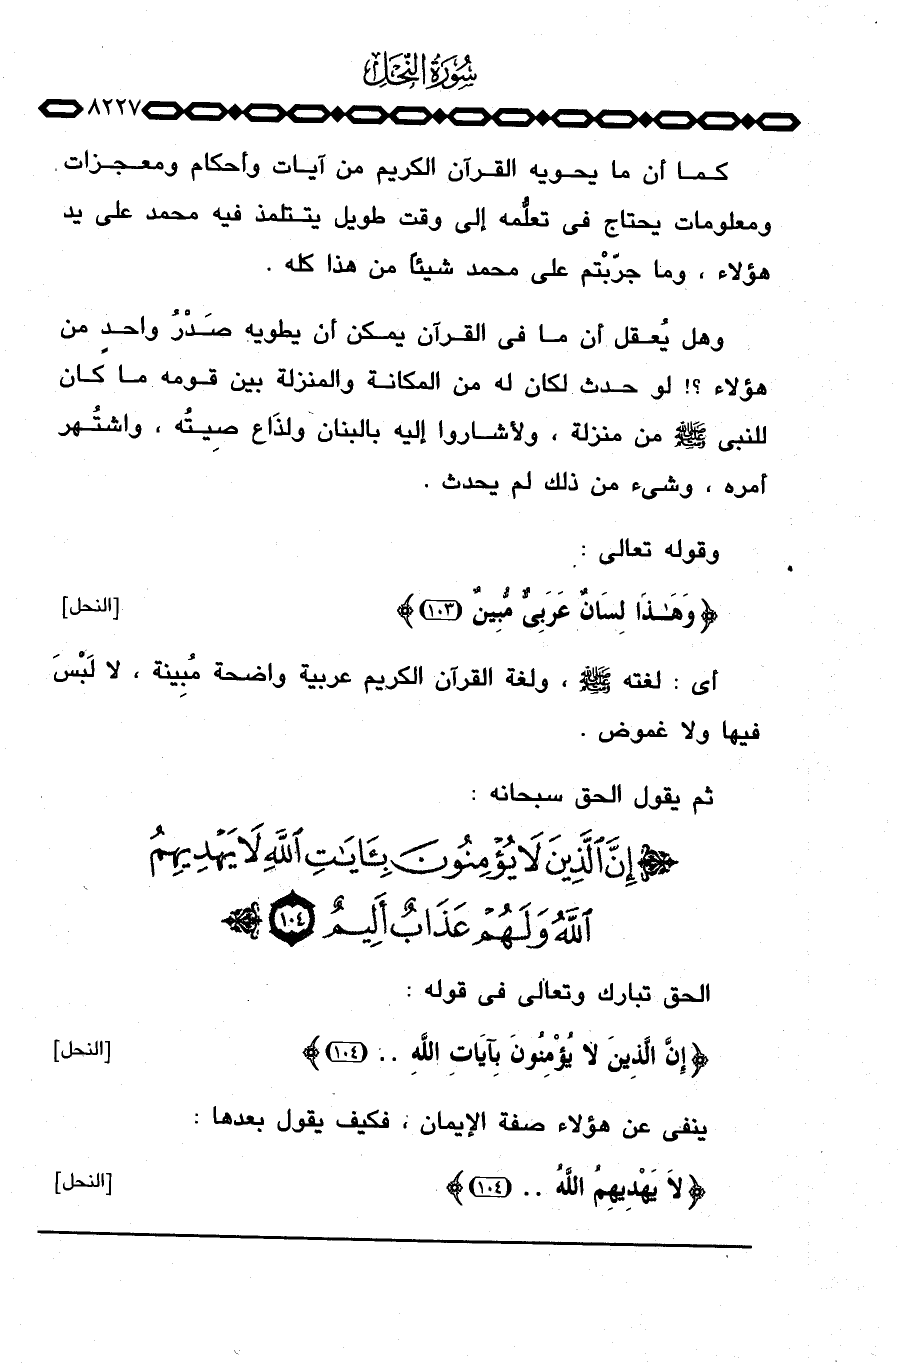 سورة النحل
٨٢٢٧
كما أن ما يحويه القرآن الكريم من آيات وأحكام ومعجزات
ومعلومات يحتاج فى تعلُّمه إلى وقت طويل يتتلمذ فيه محمد على يد
هؤلاء ، وما جرّبْتم على محمد شيئاً من هذا كله .
وهل يُعقل أن ما فى القرآن يمكن أن يطويه صَدْرُ واحدٍ من
هؤلاء ؟! لو حدث لكان له من المكانة والمنزلة بين قومه ما كان
للنبى ﷺ من منزلة ، ولأشاروا إليه بالبنان ولذَاع صِيتُه ، واشتُهر
أمره ، وشىء من ذلك لم يحدث .
وقوله تعالى :
﴿ وَهَـٰذَا لِسَانٌ عَرَبِىٌّ مُّبِينٌ (١٠٣) ﴾ [النحل]
أى : لغته ﷺ ، ولغة القرآن الكريم عربية واضحة مُبِينة ، لا لَبْسَ
فيها ولا غموض .
ثم يقول الحق سبحانه :
﴿ إِنَّ ٱلَّذِينَ لَا يُؤْمِنُونَ بِـَٔايَـٰتِ ٱللَّهِ لَا يَهْدِيهِمُ
ٱللَّهُ وَلَهُمْ عَذَابٌ أَلِيمٌ ١٠٤ ﴾
الحق تبارك وتعالى فى قوله :
﴿ إِنَّ الَّذِينَ لا يُؤْمِنُونَ بِآيَاتِ اللَّهِ .. (١٠٤) ﴾ [النحل]
ينفى عن هؤلاء صفة الإيمان ، فكيف يقول بعدها :
﴿ لا يَهْدِيهِمُ اللَّهُ .. (١٠٤) ﴾ [النحل]